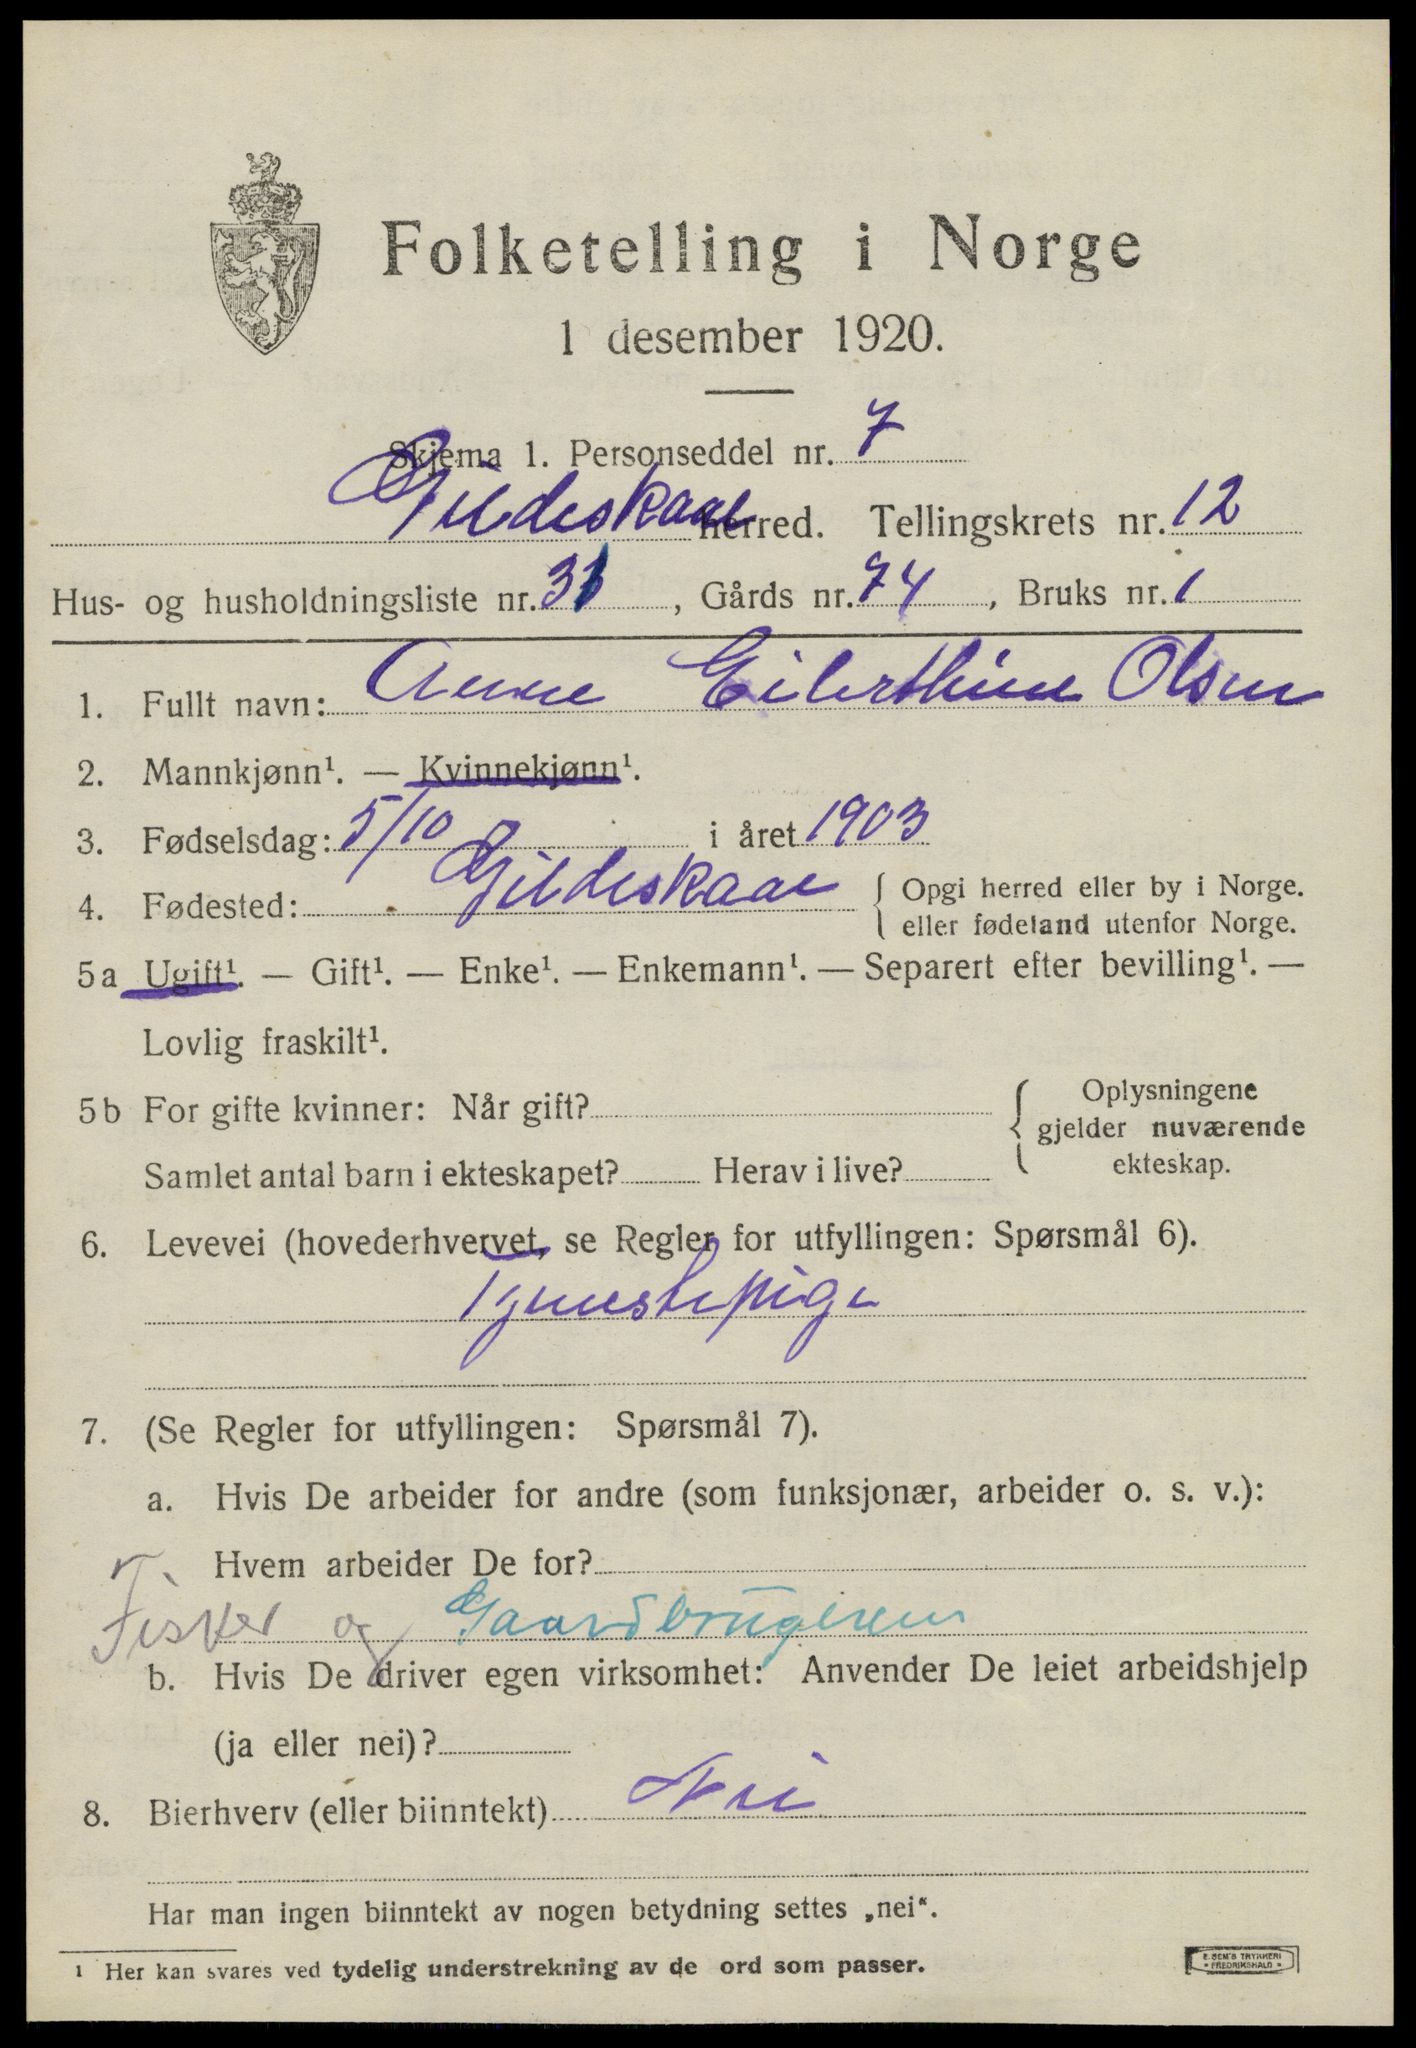 Folketelling i Norge
1 desember 1920.
Skjema 1. Personseddel nr. 7
Gildeskaal herred. Tellingskrets nr. 12
Hus- og husholdningsliste nr. 31, Gårds nr. 74, Bruks nr. 1
1. Fullt navn: Anne Eilerthine Olsen
2. Mannkjønn¹. — Kvinnekjønn¹.
3. Fødselsdag: 5/10 i året 1903
4. Fødested: Gildeskaal { Opgi herred eller by i Norge.
eller fødeland utenfor Norge.
5a Ugift¹. — Gift¹. — Enke¹. — Enkemann¹. — Separert efter bevilling¹. —
Lovlig fraskilt¹.
5b For gifte kvinner: Når gift? { Oplysningene
gjelder nuværende
Samlet antal barn i ekteskapet? Herav i live? ekteskap.
6. Levevei (hovederhvervet, se Regler for utfyllingen: Spørsmål 6).
Tjenestepige
7. (Se Regler for utfyllingen: Spørsmål 7).
a. Hvis De arbeider for andre (som funksjonær, arbeider o. s. v.):
Hvem arbeider De for?
Fisker og Gaardbrugeren
b. Hvis De driver egen virksomhet: Anvender De leiet arbeidshjelp
(ja eller nei)?
8. Bierhverv (eller biinntekt) Nei
Har man ingen biinntekt av nogen betydning settes „nei“.
1 Her kan svares ved tydelig understrekning av de ord som passer.
E. SEM'S TRYKKERI
• FREDRIKSHALD •